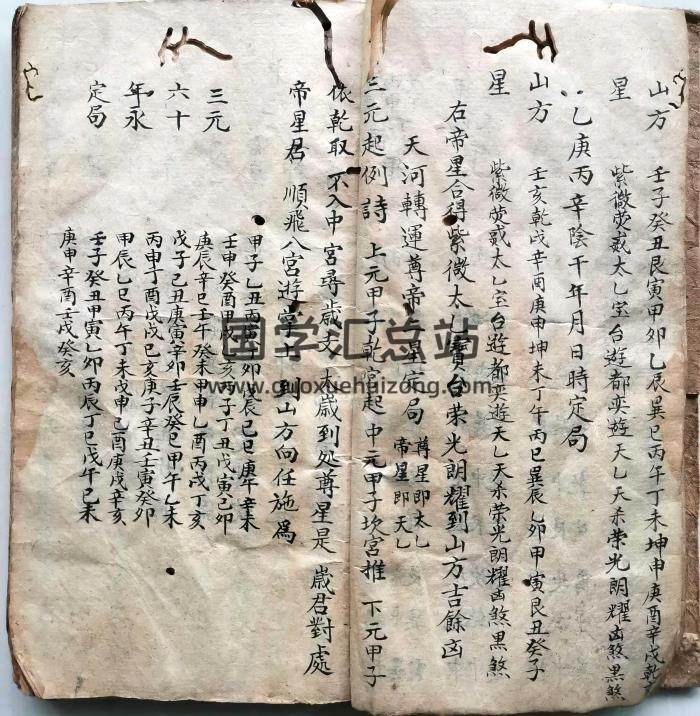 山方 壬子癸丑艮寅甲卯乙辰巽巳丙午丁未坤申庚酉辛戌乾
星 紫微荧惑太乙宝台遊都奕遊天乙天杀荣光朗耀凶煞黑煞
乙庚丙辛陰干年月日時定局
山方 壬亥乾戌辛酉庚申坤未丁午丙巳巽辰乙卯甲寅艮丑癸子
星 紫微荧惑太乙宝台遊都奕遊天乙天杀荣光朗耀凶煞黑煞
右帝星合得紫微太乙寶台荣光朗耀到山方吉餘凶
天河轉運尊帝二星定局 尊星即太乙 帝星即天乙
三元起例詩 上元甲子乾宮起中元甲子坎宮推 下元甲子
依乾取 不入中宮尋歲支 太歲到处尊星是 歲君對處
帝星君 順飛八宮遊掌上 到山方向任施為
三元
六十
年永
定局
甲子乙丑丙寅丁卯戊辰己巳庚午辛未
壬申癸酉甲戌乙亥丙子丁丑戊寅己卯
庚辰辛巳壬午癸未甲申乙酉丙戌丁亥
戊子己丑庚寅辛卯壬辰癸巳甲午乙未
丙申丁酉戊戌己亥庚子辛丑壬寅癸卯
甲辰乙巳丙午丁未戊申己酉庚戌辛亥
壬子癸丑甲寅乙卯丙辰丁巳戊午己未
庚申辛酉壬戌癸亥
国学汇总站
www.guoxuehuizong.com